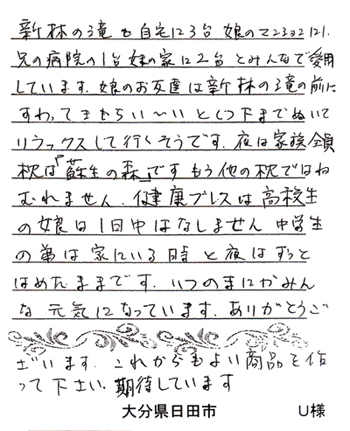 新林の滝も自宅に3台 娘のマンションに1台
兄の病院の1台妹の家に2台とみんなで愛用
しています。娘のお友達は新林の滝の前に
すわってきもちい〜いとくつ下までぬいで
リラックスして行くそうです。夜は家族全員
枕は「蘇生の森」です もう他の枕ではね
むれません。健康ブレスは高校生
の娘は1日中はなしません 中学生
の弟は家にいる時と夜はずっと
はめたままです。いつのまにかみん
な元気になっています。ありがとうご
ざいます。これからもよい商品を作
って下さい。期待しています
大分県日田市 U様